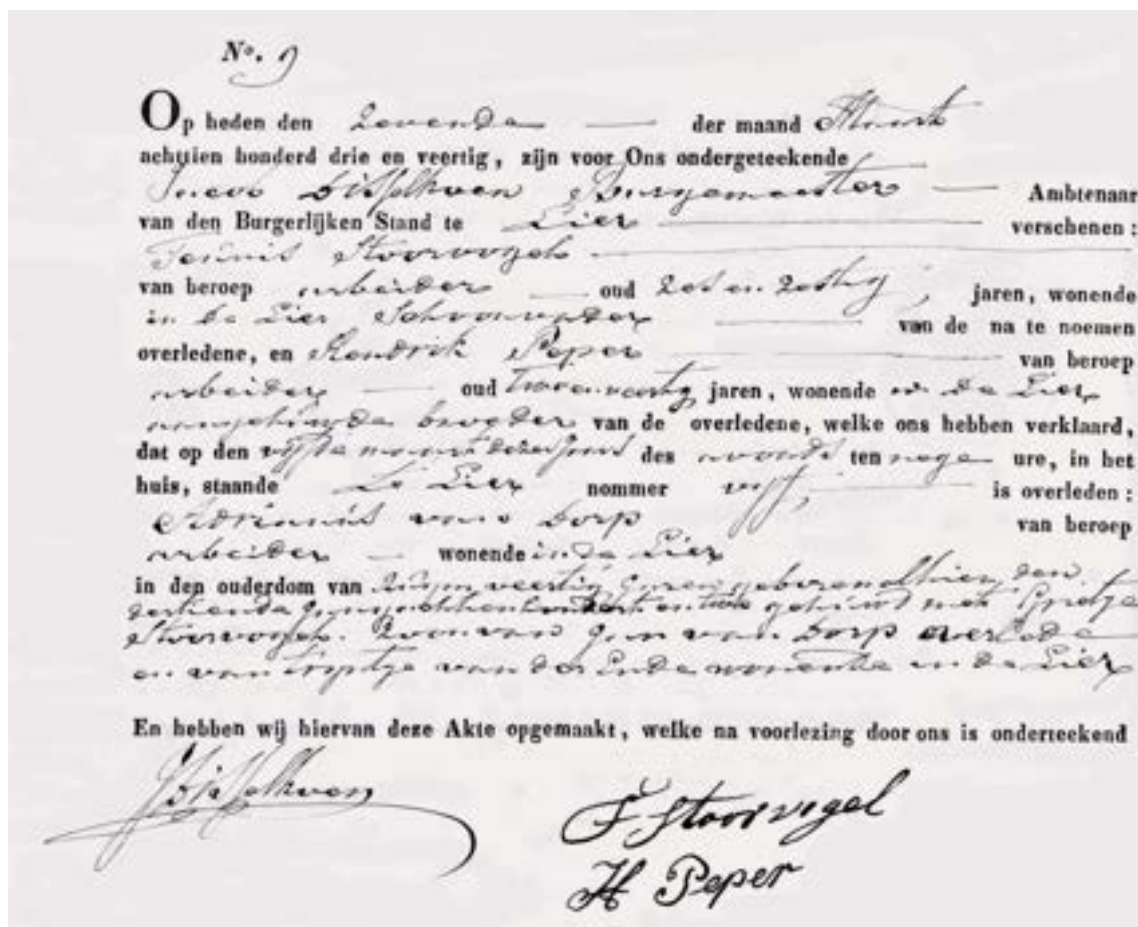 No. 9
Op heden den zevende der maand Maart
achttien honderd drie en veertig, zijn voor Ons ondergeteekende
Burgemeester Ambtenaar
van den Burgerlijken Stand te Lier verschenen:
Teunis Stoorvogel
van beroep arbeider oud zes en zestig, jaren, wonende
in de Lier Schoonvader van de na te noemen
overledene, en Hendrik Peper van beroep
arbeider oud jaren, wonende in De Lier
aangehuwde broeder van de overledene, welke ons hebben verklaard,
dat op den vijfde maart dezes Jaars des avonds ten nege ure, in het
huis, staande De Lier nommer vijf, is overleden:
Adrianus van Dorp van beroep
arbeider wonende in de Lier
in den ouderdom van veertig Jaren geboren alhier den
gehuwd met Grietje
Stoorvogel. Zoon van Jan van Dorp overlede
en van van der Ende wonende in de Lier
En hebben wij hiervan deze Akte opgemaakt, welke na voorlezing door ons is onderteekend
T Stoorvogel
H Peper